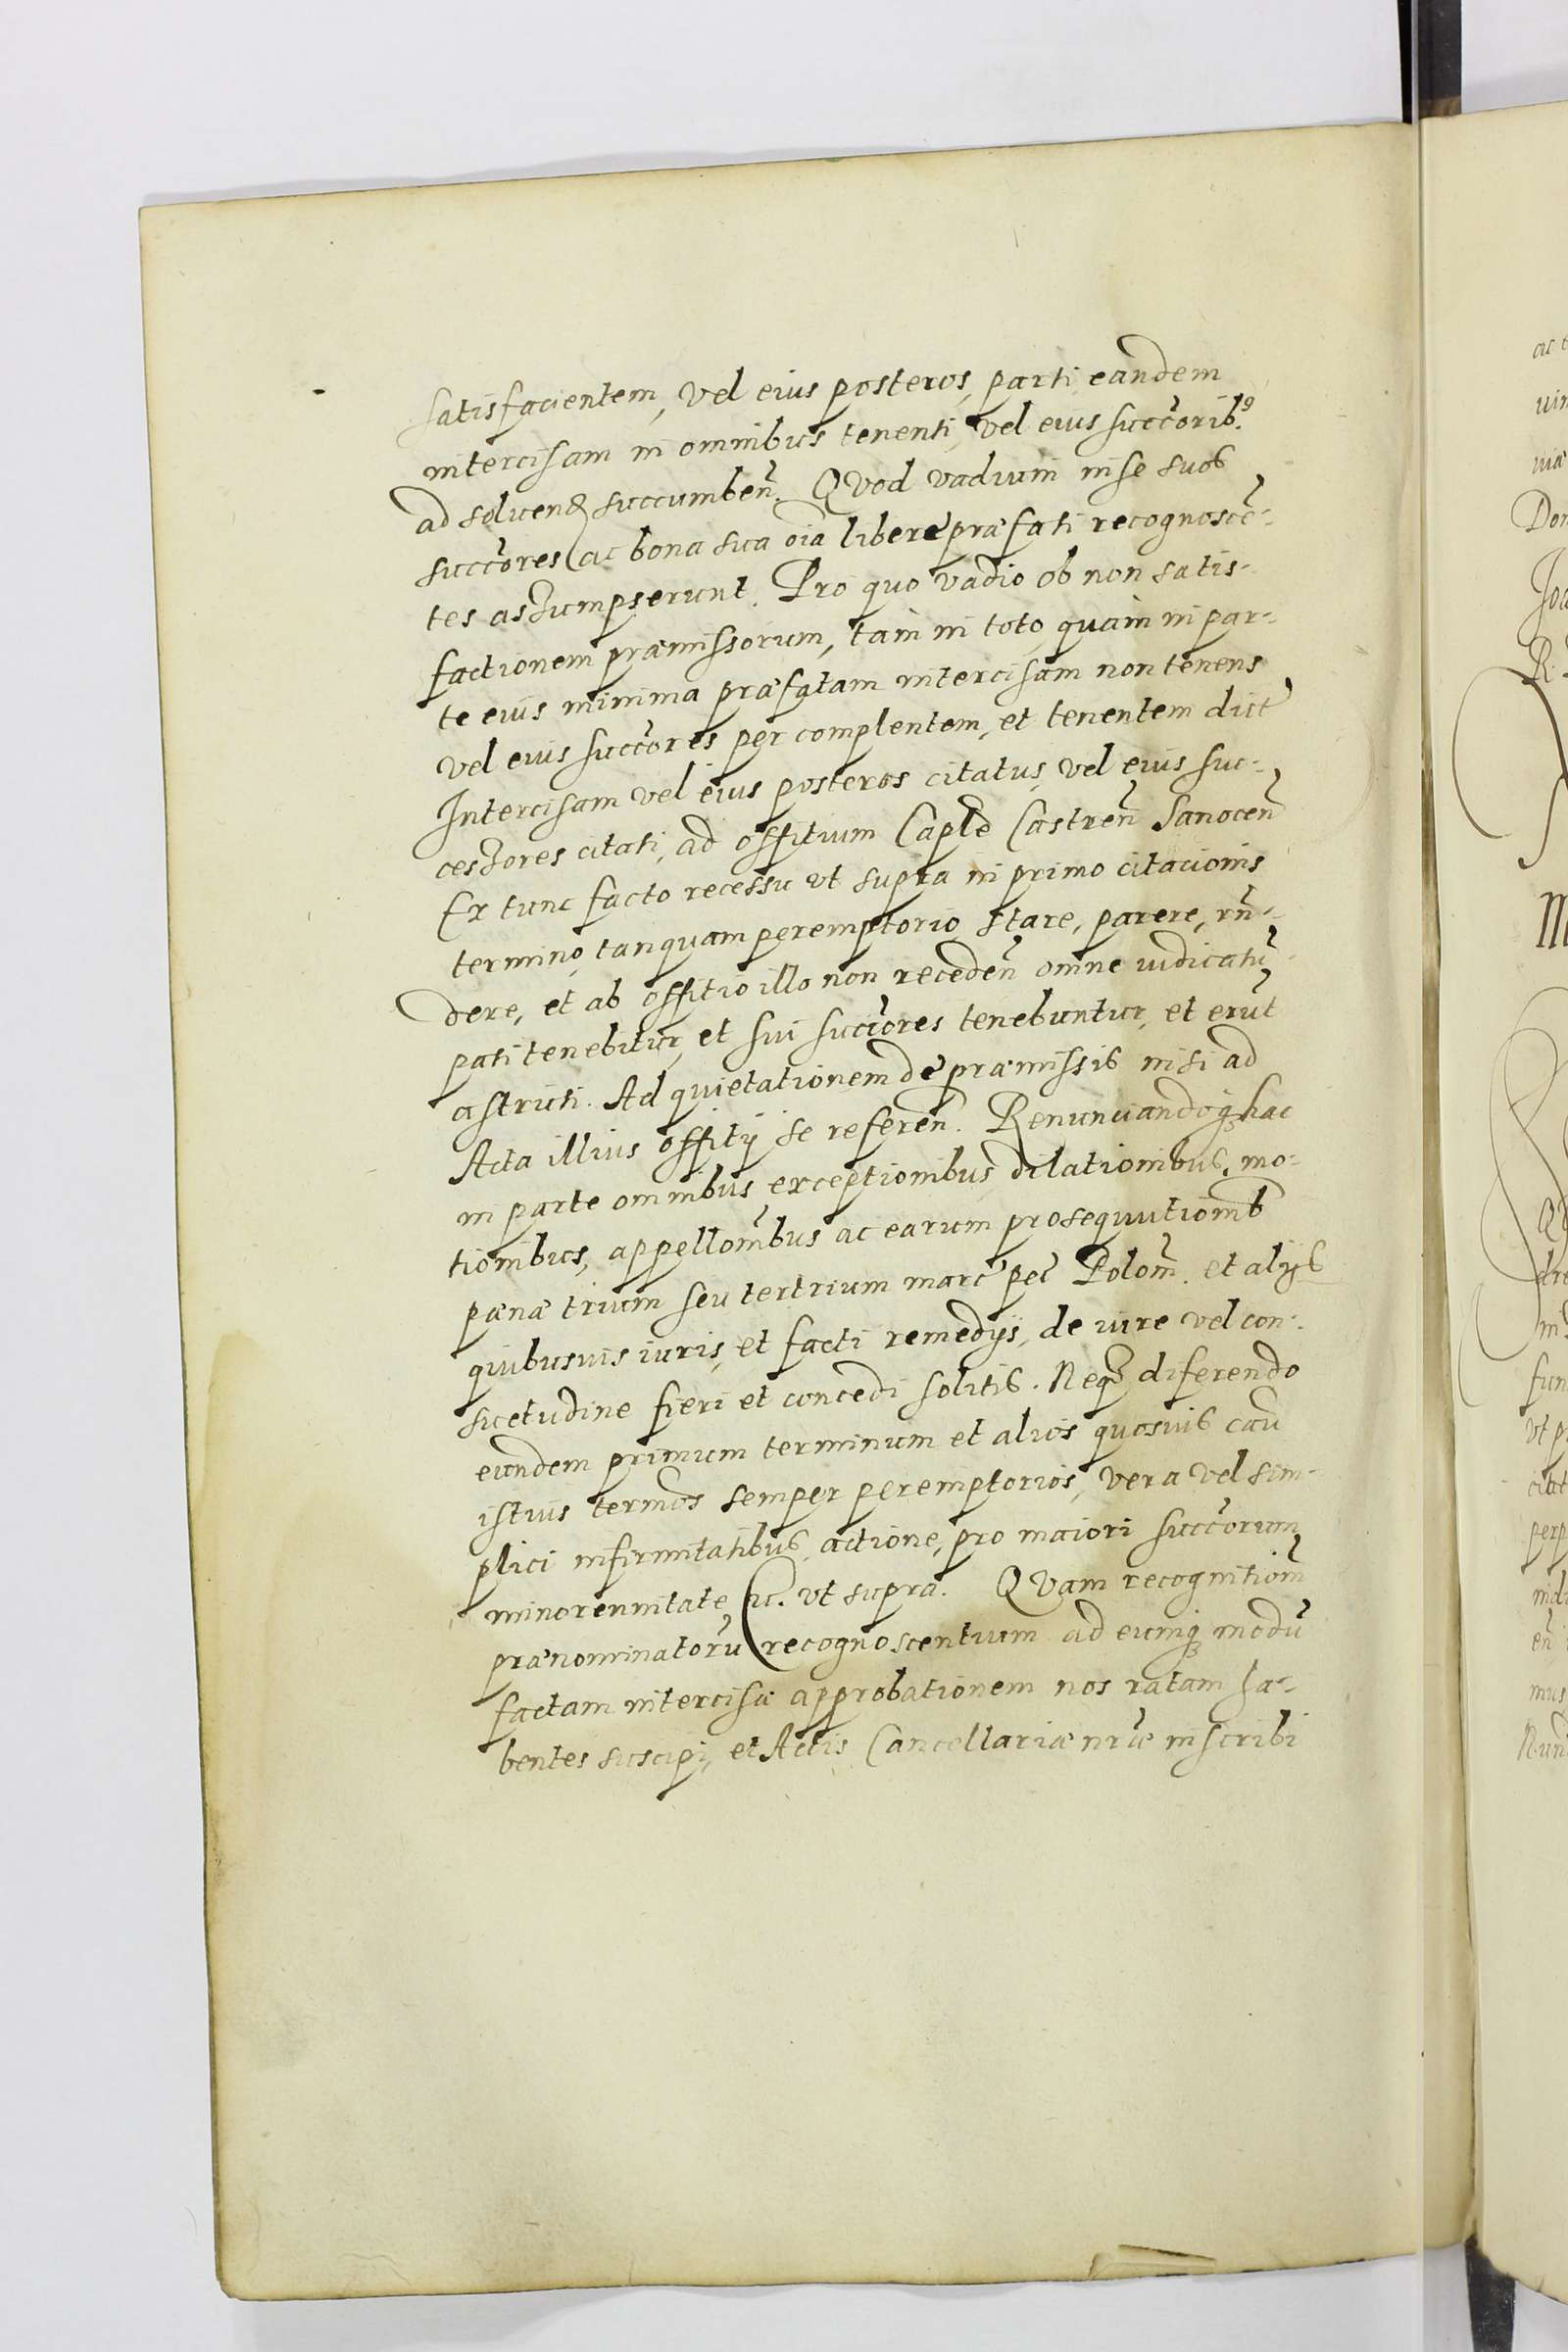 satisfacientem, vel eius posteros, parti eandem
intercisam in omnibus tenenti, vel eius succorib⁹
ad soluend succumbeñ. Quod vadium in se suos
succores ac bona sua oĩa liberè præfati recognoscē-
tes assumpserunt. Pro quo vadio ob non satis-
factionem præmissorum, tam in toto quàm in par-
te eius minima præfatam intercisam non tenens
vel eius succores per complentem, et tenentem dict
Intercisam vel eius posteros citatus, vel eius suc-
cessores citati, ad offitium Caple Castreñ Sanoceñ
Ex tunc facto recessu vt supra in primo citacionis
termino, tanquam peremptorio stare, parere, rñ-
dere, et ab offitio illo non recedeñ omne iudicatū
pati tenebitur, et sui succores tenebuntur, et erūt
astricti. Ad quietationem dè præmissis nisi ad
Acta illius offitij se refereñ. Renunciandoq hac
in parte omnibus exceptionibus dilationibus, mo-
tionibus, appellonibus ac earum prosequutionib
pænæ trium seu tertrium marc pec Polom̃. et alijs
quibusuis iuris, et facti remedijs, de iure vel con-
suetudine fieri et concedi solitis. Neq diferendo
eundem primum terminum et alios quosuis cau
istius termos semper peremptorios, vera vel sim-
plici infirmitatibus, actione, pro maiori succorum
minorennitate etc. vt supra. Quam recognitiom̃
prænominatorū recognoscentium ad eumq modū
factam intercisæ approbationem nos ratam ha-
bentes suscipi, et Actis Cancellariæ nræ inscribi